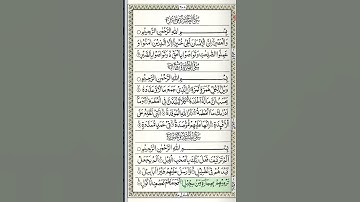 بِسْمِ اللهِ الرَّحْمٰنِ الرَّحِيْمِ
وَالْعَصْرِ اِنَّ الْاِنْسَانَ لَفِيْ خُسْرٍ اِلَّا الَّذِيْنَ اٰمَنُوْا وَ
عَمِلُوا الصّٰلِحٰتِ وَتَوَاصَوْا بِالْحَقِّ وَتَوَاصَوْا بِالصَّبْرِ
بِسْمِ اللهِ الرَّحْمٰنِ الرَّحِيْمِ
وَيْلٌ لِّكُلِّ هُمَزَةٍ لُّمَزَةِ الَّذِيْ جَمَعَ مَالًا وَّعَدَّدَهٗ
يَحْسَبُ اَنَّ مَالَهٗ اَخْلَدَهٗ كَلَّا لَيُنْۢبَذَنَّ فِي الْحُطَمَةِ وَمَا
اَدْرٰىكَ مَا الْحُطَمَةُ نَارُ اللهِ الْمُوْقَدَةُ الَّتِيْ تَطَّلِعُ عَلَى
الْاَفْـِٕدَةِ اِنَّهَا عَلَيْهِمْ مُّؤْصَدَةٌ فِيْ عَمَدٍ مُّمَدَّدَةٍ
بِسْمِ اللهِ الرَّحْمٰنِ الرَّحِيْمِ
اَلَمْ تَرَ كَيْفَ فَعَلَ رَبُّكَ بِاَصْحٰبِ الْفِيْلِ اَلَمْ يَجْعَلْ
كَيْدَهُمْ فِيْ تَضْلِيْلٍ وَّاَرْسَلَ عَلَيْهِمْ طَيْرًا اَبَابِيْلَ
تَرْمِيْهِمْ بِحِجَارَةٍ مِّنْ سِجِّيْلٍ فَجَعَلَهُمْ كَعَصْفٍ مَّاْكُوْلٍ